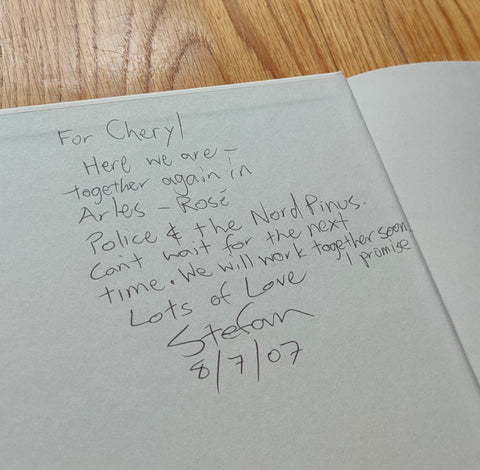 For Cheryl
Here we are -
together again in
Arles - Rosé
Police & the Nord Pinus.
Can't wait for the next
time. We will work together soon,
I promise
Lots of Love
Stefan
8/7/07